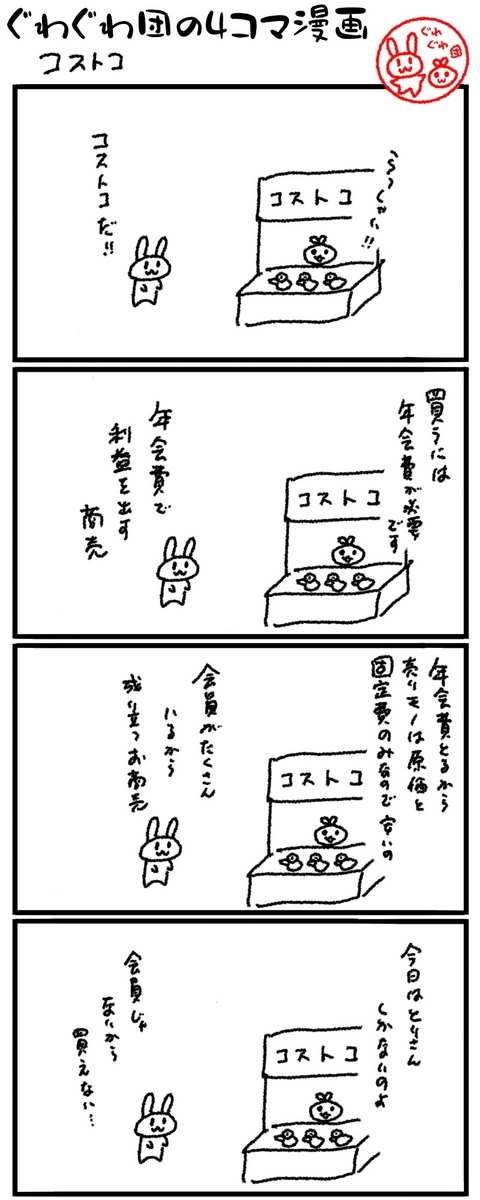 ぐわぐわ団の4コマ漫画
コストコ
ぐわ
ぐわ
団
らっしゃい!!
コストコ
コストコだ!!
買うには
年会費が必要
です
コストコ
年会費で
利益を出す
商売
年会費とるから
売りモノは原価と
固定費のみなので安いの
コストコ
会員がたくさん
いるから
成り立つお商売
今日はとりさん
しかないのよ
コストコ
会員じゃ
ないから
買えない…